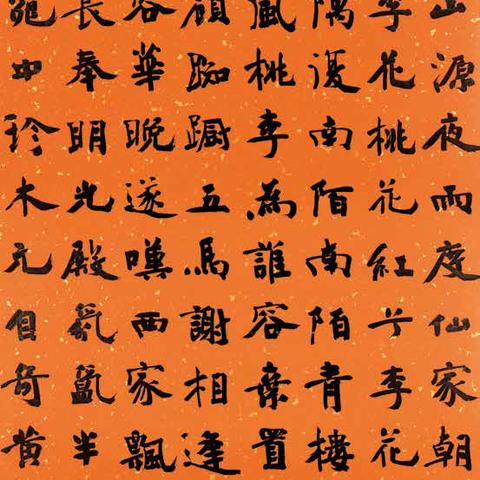 山源夜雨度仙家朝
李花桃花紅兮李花
隅復南陌南陌青樓
風桃李為誰容棄置
顧踟蹰五馬謝相逢
容華晚遂嘆西家飄
長奉明光殿氛氳半
苑中珍木元自奇黃